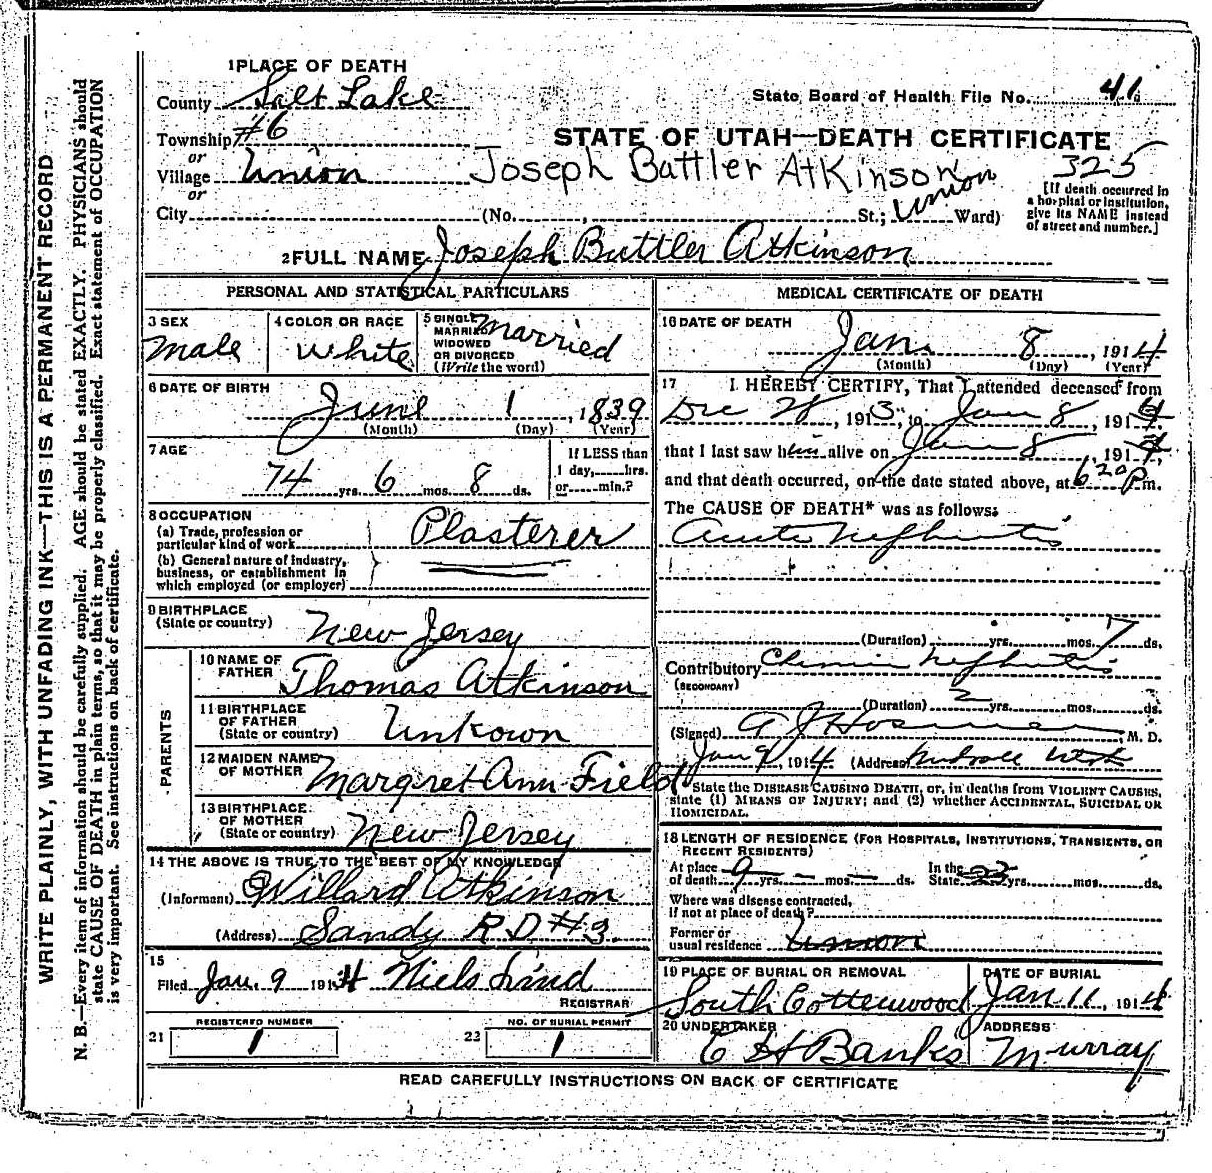 1 PLACE OF DEATH
County Salt Lake
State Board of Health File No. 41
Township #6
or
STATE OF UTAH—DEATH CERTIFICATE
Village Union
Joseph Battler Atkinson
325
or
City
(No. , St.; Union Ward)
[If death occurred in
a hospital or institution,
give its NAME instead
of street and number.]
2 FULL NAME Joseph Buttler Atkinson
PERSONAL AND STATISTICAL PARTICULARS
3 SEX
Male
4 COLOR OR RACE
White
5 SINGLE
MARRIED
WIDOWED
OR DIVORCED
(Write the word)
Married
6 DATE OF BIRTH
June 1, 1839
(Month) (Day) (Year)
7 AGE
74 yrs. 6 mos. 8 ds.
If LESS than
1 day, hrs.
or min.?
8 OCCUPATION
(a) Trade, profession or
particular kind of work Plasterer
(b) General nature of industry,
business, or establishment in
which employed (or employer)
9 BIRTHPLACE
(State or country) New Jersey
PARENTS
10 NAME OF
FATHER Thomas Atkinson
11 BIRTHPLACE
OF FATHER
(State or country) Unkown
12 MAIDEN NAME
OF MOTHER Margret Ann Field
13 BIRTHPLACE
OF MOTHER
(State or country) New Jersey
14 THE ABOVE IS TRUE TO THE BEST OF MY KNOWLEDGE
(Informant) Willard Atkinson
(Address) Sandy R D #3.
15
Filed Jan. 9 1914 Niels Lind
REGISTRAR
REGISTERED NUMBER
21 1
NO. OF BURIAL PERMIT
22 1
MEDICAL CERTIFICATE OF DEATH
16 DATE OF DEATH
Jan. 8, 1914
(Month) (Day) (Year)
17 I HEREBY CERTIFY, That I attended deceased from
Dec 28, 1913, to Jan 8, 1914
that I last saw him alive on Jan 8, 1914,
and that death occurred, on the date stated above, at 6 20 P m.
The CAUSE OF DEATH* was as follows:
Acute Nephritis
(Duration) yrs. mos. 7 ds.
Contributory Chronic Nephritis
(SECONDARY)
(Duration) 2 yrs. mos. ds.
(Signed) A J Hosmer, M. D.
Jan 9, 1914 (Address) Midvale Utah
*State the DISEASE CAUSING DEATH, or, in deaths from VIOLENT CAUSES,
state (1) MEANS OF INJURY; and (2) whether ACCIDENTAL, SUICIDAL OR
HOMICIDAL.
18 LENGTH OF RESIDENCE (FOR HOSPITALS, INSTITUTIONS, TRANSIENTS, OR
RECENT RESIDENTS)
At place
of death 9 yrs. – mos. – ds.
In the
State 23 yrs. mos. ds.
Where was disease contracted,
if not at place of death?
Former or
usual residence Union
19 PLACE OF BURIAL OR REMOVAL
South Cottenwood
DATE OF BURIAL
Jan 11, 1914
20 UNDERTAKER
C H Banks
ADDRESS
Murray
READ CAREFULLY INSTRUCTIONS ON BACK OF CERTIFICATE
WRITE PLAINLY, WITH UNFADING INK—THIS IS A PERMANENT RECORD
N. B.—Every item of information should be carefully supplied. AGE should be stated EXACTLY. PHYSICIANS should
state CAUSE OF DEATH in plain terms, so that it may be properly classified. Exact statement of OCCUPATION
is very important. See instructions on back of certificate.